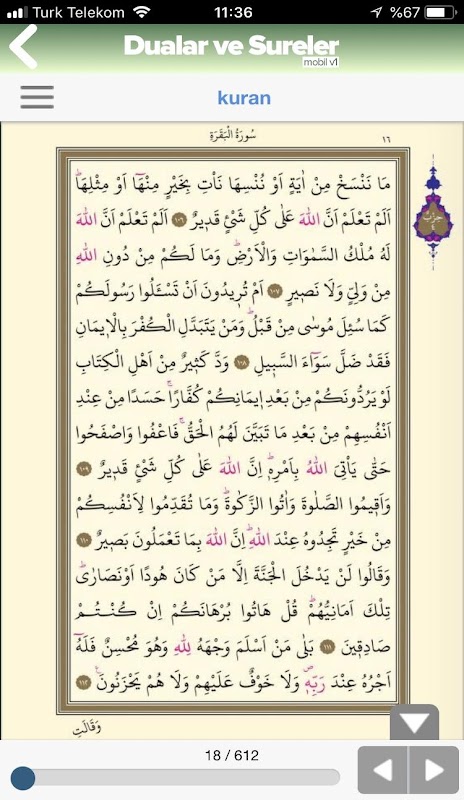 Turk Telekom 11:36 %67
Dualar ve Sureler
mobil v1
kuran
سُورَةُ الْبَقَرَةِ ١٦
حِزْبُ
مَا نَنْسَخْ مِنْ اٰيَةٍ اَوْ نُنْسِهَا نَأْتِ بِخَيْرٍ مِنْهَٓا اَوْ مِثْلِهَاۜ
اَلَمْ تَعْلَمْ اَنَّ اللّٰهَ عَلٰى كُلِّ شَيْءٍ قَد۪يرٌ ﴿١٠٦﴾ اَلَمْ تَعْلَمْ اَنَّ اللّٰهَ
لَهُ مُلْكُ السَّمٰوَاتِ وَالْاَرْضِۜ وَمَا لَكُمْ مِنْ دُونِ اللّٰهِ
مِنْ وَلِيٍّ وَلَا نَص۪يرٍ ﴿١٠٧﴾ اَمْ تُر۪يدُونَ اَنْ تَسْـَٔلُوا رَسُولَكُمْ
كَمَا سُئِلَ مُوسٰى مِنْ قَبْلُۜ وَمَنْ يَتَبَدَّلِ الْكُفْرَ بِالْا۪يمَانِ
فَقَدْ ضَلَّ سَوَٓاءَ السَّب۪يلِ ﴿١٠٨﴾ وَدَّ كَث۪يرٌ مِنْ اَهْلِ الْكِتَابِ
لَوْ يَرُدُّونَكُمْ مِنْ بَعْدِ ا۪يمَانِكُمْ كُفَّارًاۚ حَسَدًا مِنْ عِنْدِ
اَنْفُسِهِمْ مِنْ بَعْدِ مَا تَبَيَّنَ لَهُمُ الْحَقُّۚ فَاعْفُوا وَاصْفَحُوا
حَتّٰى يَأْتِيَ اللّٰهُ بِاَمْرِه۪ۜ اِنَّ اللّٰهَ عَلٰى كُلِّ شَيْءٍ قَد۪يرٌ ﴿١٠٩﴾
وَاَق۪يمُوا الصَّلٰوةَ وَاٰتُوا الزَّكٰوةَۜ وَمَا تُقَدِّمُوا لِاَنْفُسِكُمْ
مِنْ خَيْرٍ تَجِدُوهُ عِنْدَ اللّٰهِۜ اِنَّ اللّٰهَ بِمَا تَعْمَلُونَ بَص۪يرٌ ﴿١١٠﴾
وَقَالُوا لَنْ يَدْخُلَ الْجَنَّةَ اِلَّا مَنْ كَانَ هُودًا اَوْ نَصَارٰىۜ
تِلْكَ اَمَانِيُّهُمْۜ قُلْ هَاتُوا بُرْهَانَكُمْ اِنْ كُنْتُمْ
صَادِق۪ينَ ﴿١١١﴾ بَلٰى مَنْ اَسْلَمَ وَجْهَهُ لِلّٰهِ وَهُوَ مُحْسِنٌ فَلَهُٓ
اَجْرُهُ عِنْدَ رَبِّه۪ۖ وَلَا خَوْفٌ عَلَيْهِمْ وَلَا هُمْ يَحْزَنُونَ۟ ﴿١١٢﴾
وَقَالَتِ
18 / 612